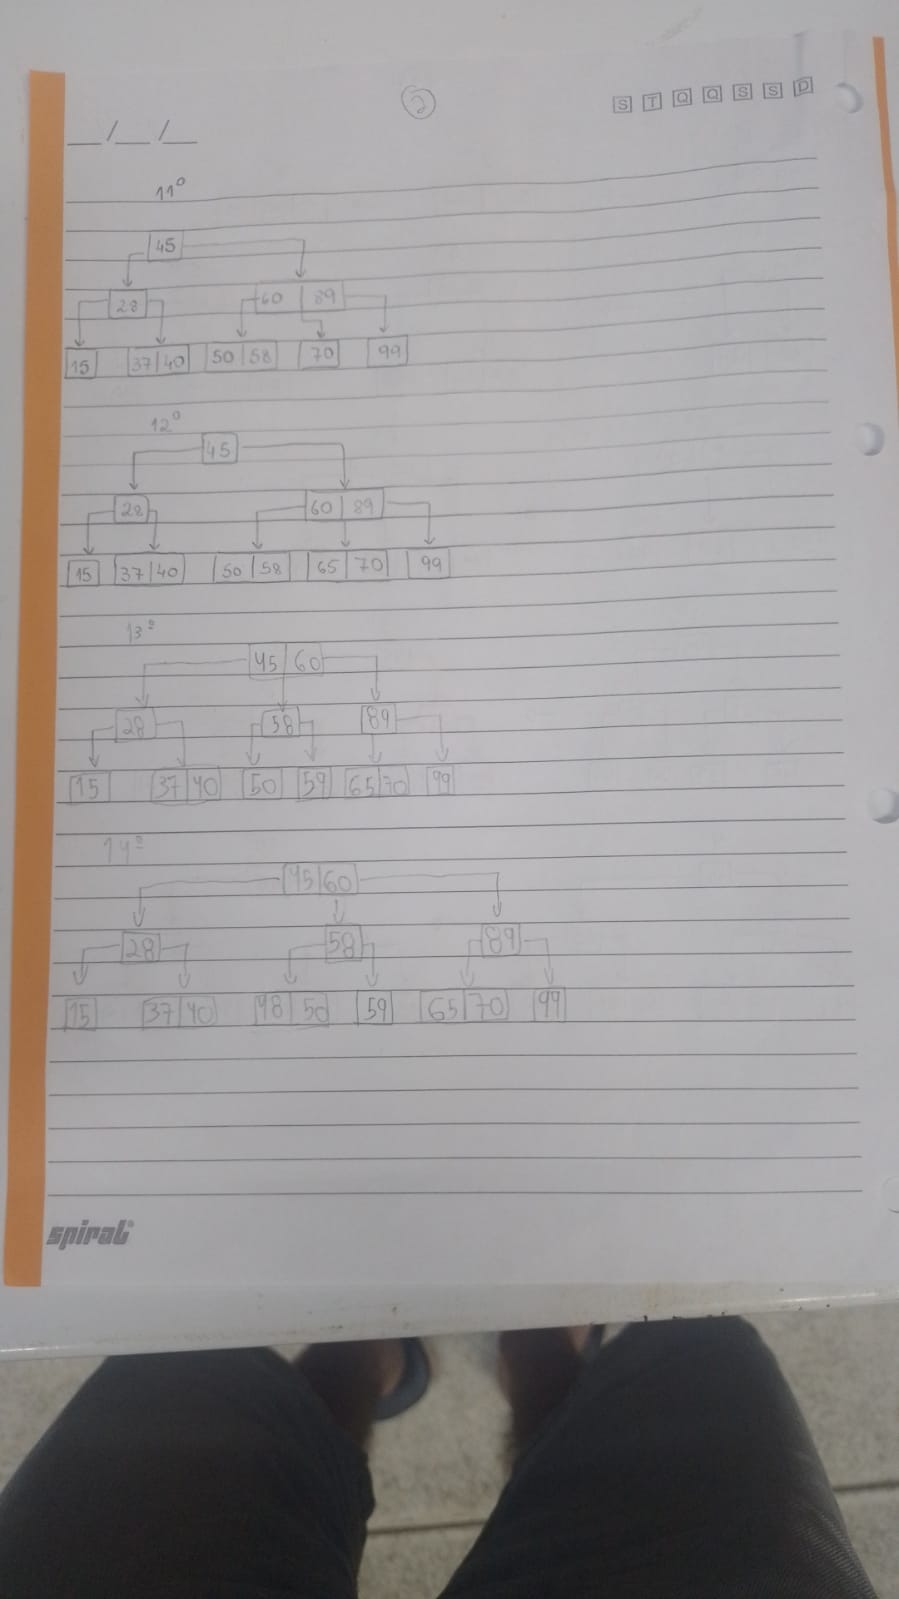 2
S T Q Q S S D
__/__/__
11º
45
28 60 89
15 37 40 50 58 70 99
12º
45
28 60 89
15 37 40 50 58 65 70 99
13º
45 60
28 58 89
15 37 40 50 59 65 70 99
14º
45 60
28 58 89
15 37 40 48 50 59 65 70 99
spiral